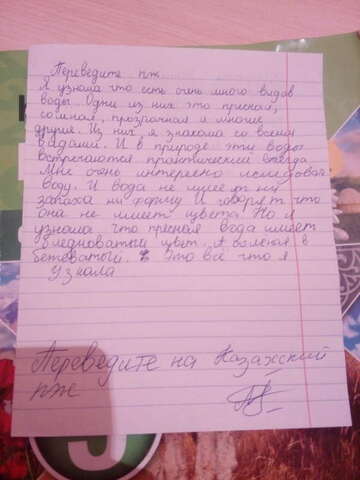 Переведите пж
Я узнала что есть очень много видов
воды. Одни из них это пресная,
солёная, прозрачная и многие
другие. Из них, я знакома со всеми
видами. И в природе эти воды
встречаются практически всегда
Мне очень интересно исследовать
воду. И вода не имеет ни
запаха ни форму И говорят что
она не имеет цвета. Но я
узнала что пресная вода имеет
бледноватый цвет. А соленая
Это всё что я
Узнала
Переведите на Казахский
пж